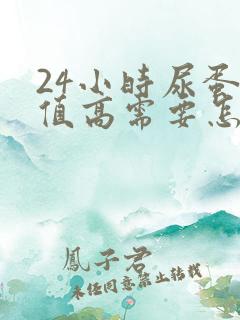 24小时尿蛋
值高需要怎
鳳子君
未经同意禁止转载